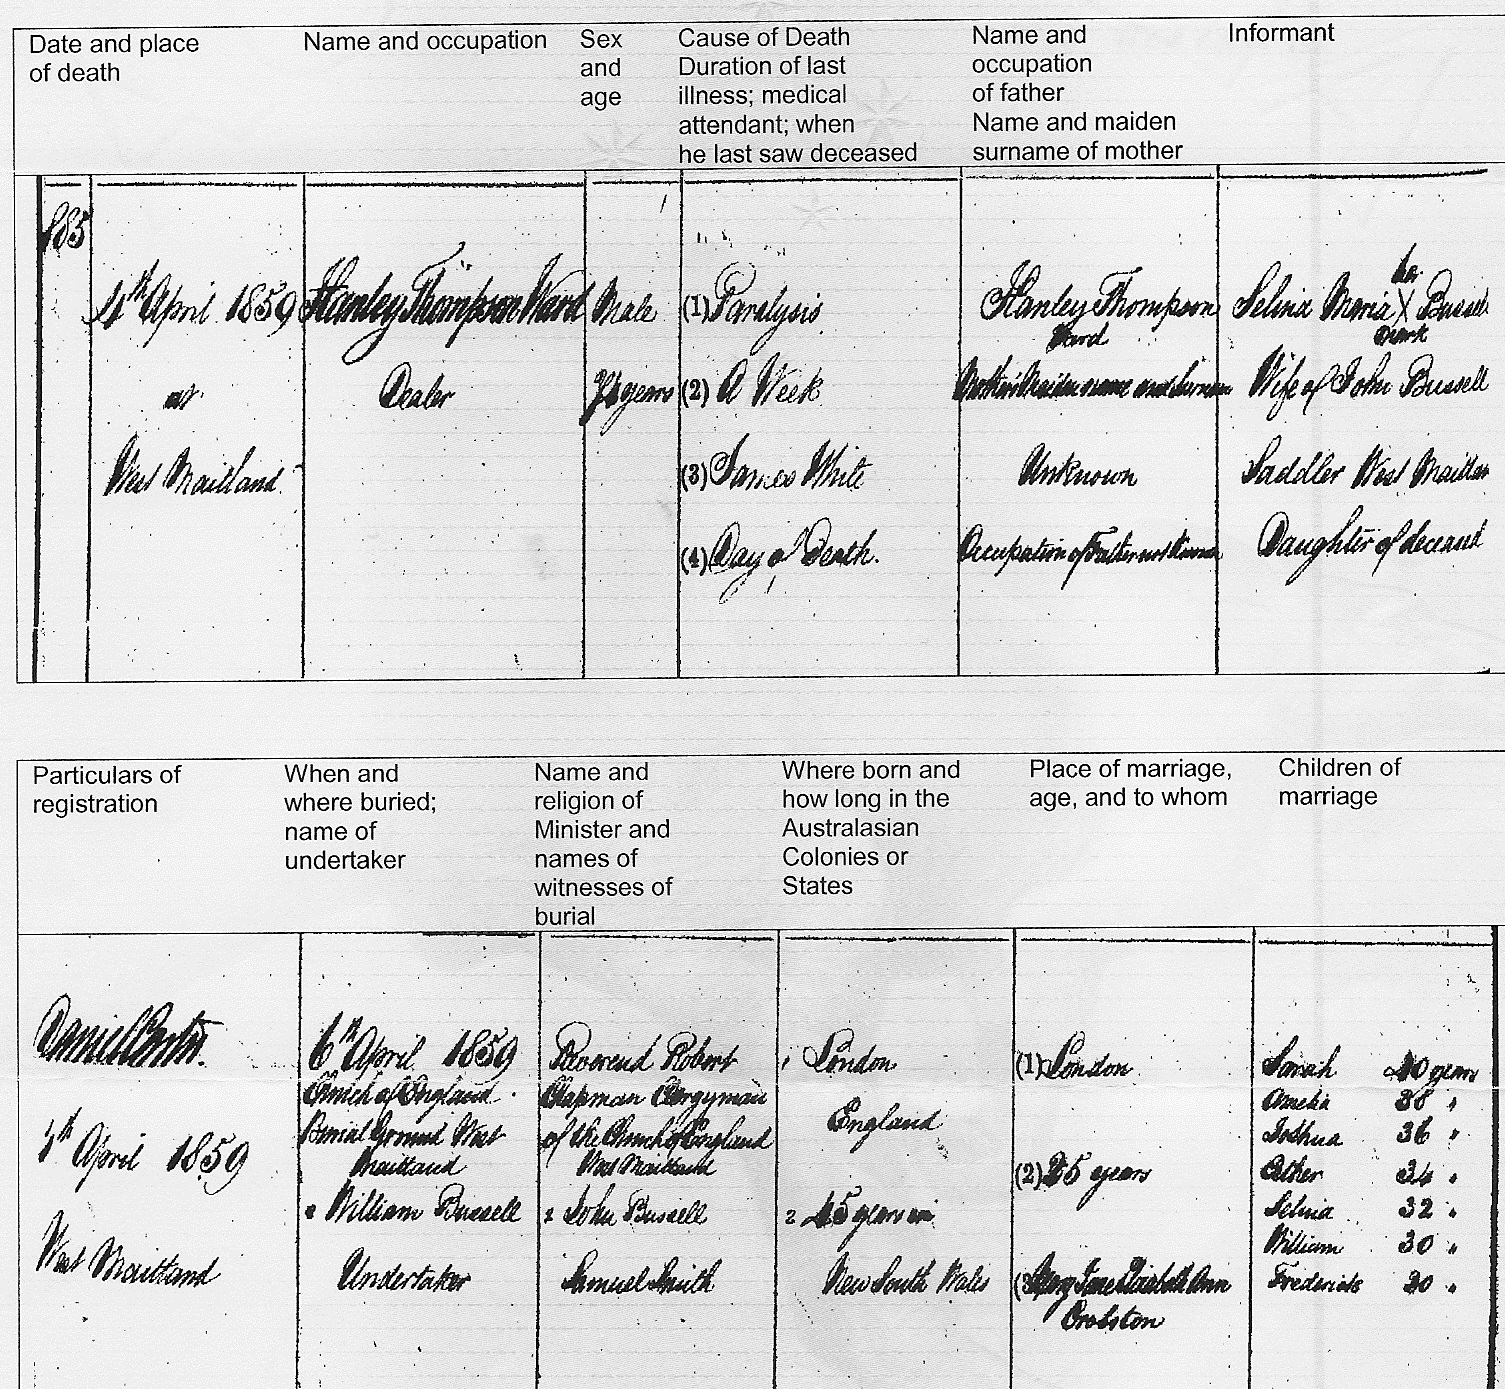 Date and place
of death
Name and occupation
Sex
and
age
Cause of Death
Duration of last
illness; medical
attendant; when
he last saw deceased
Name and
occupation
of father
Name and maiden
surname of mother
Informant
885
4th April 1859
at
West Maitland
Hanley Thompson Ward
Dealer
Male
years
(1) Paralysis
(2) A Week
(3) James White
(4) Day of Death.
Hanley Thompson
Ward
Mother's Maiden name and Surname
Unknown
Occupation of Father not Known
her
Selina Maria X Bussell
mark
Wife of John Bussell
Saddler West Maitland
Daughter of deceased
Particulars of
registration
When and
where buried;
name of
undertaker
Name and
religion of
Minister and
names of
witnesses of
burial
Where born and
how long in the
Australasian
Colonies or
States
Place of marriage,
age, and to whom
Children of
marriage
Daniel
4th April 1859
West Maitland
6th April 1859
Church of England
Burial Ground West
Maitland
William Bussell
Undertaker
Reverend Robert
Chapman Clergyman
of the Church of England
West Maitland
2 John Bussell
Samuel Smith
1 London
England
2 45 years in
New South Wales
(1) London
(2) 25 years
(3) Mary Jane Elizabeth Ann
Crobston
Sarah 40 years
Amelia 38 "
Joshua 36 "
Esther 34 "
Selina 32 "
William 30 "
Frederick 20 "